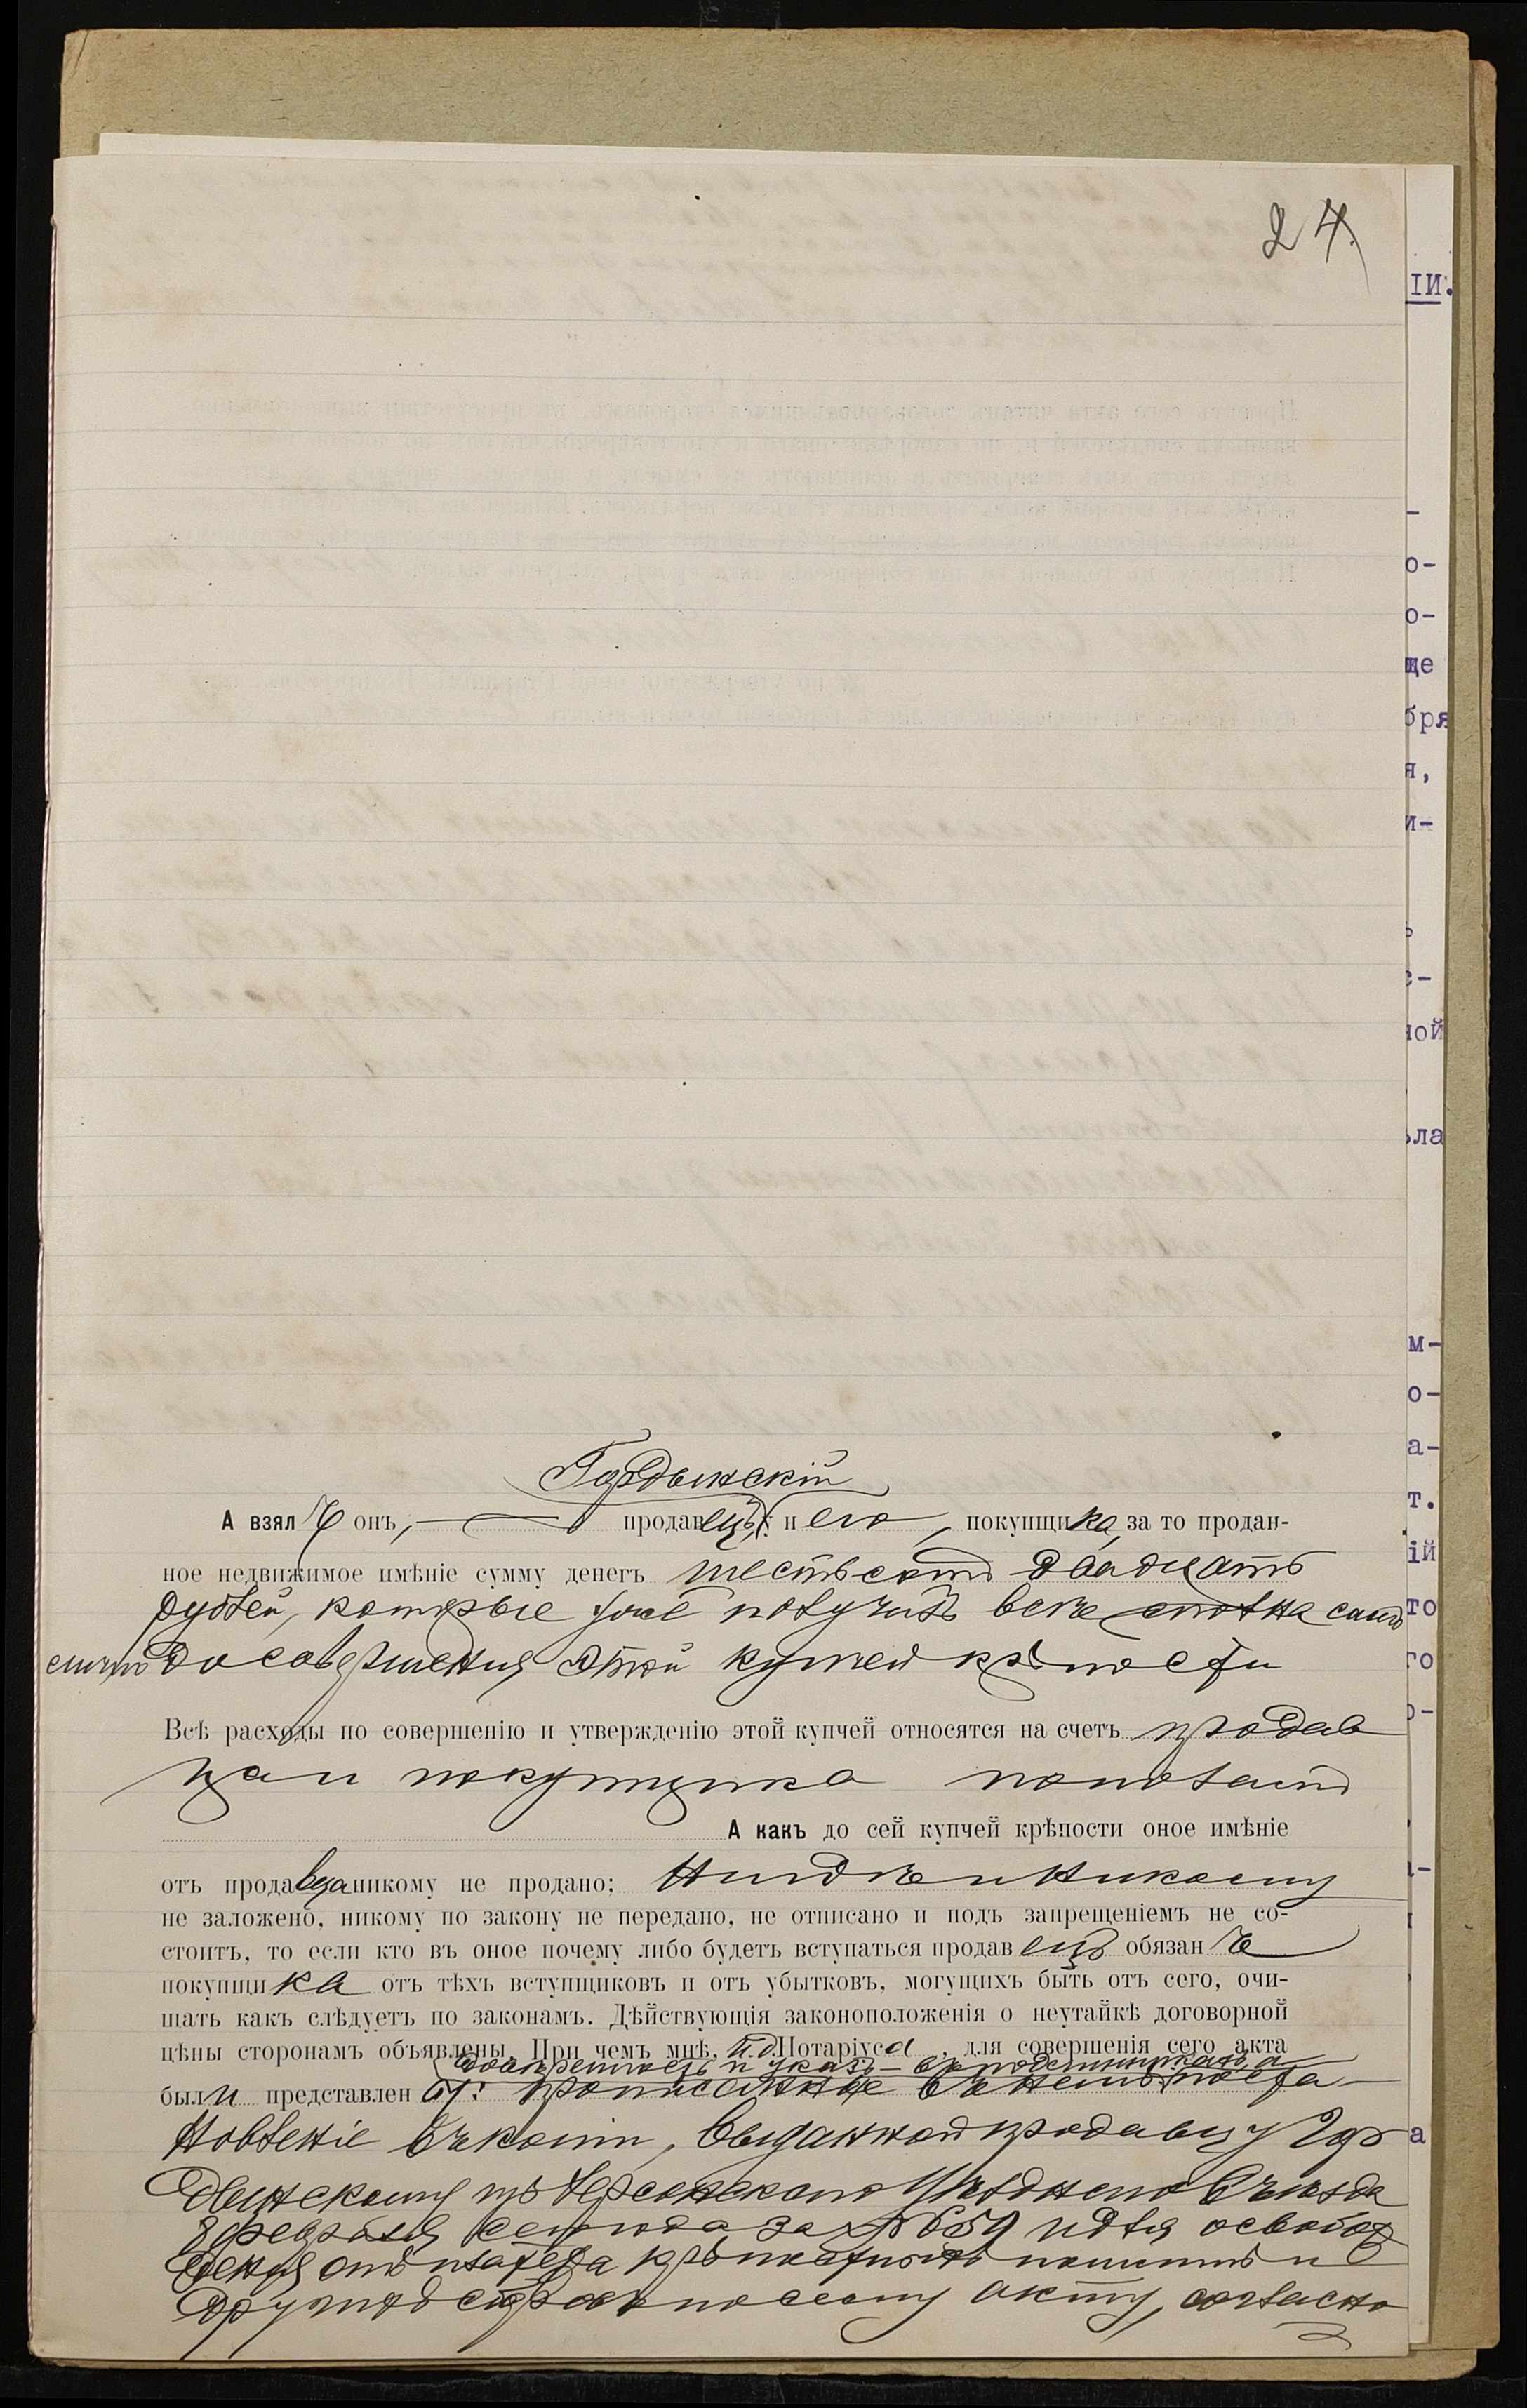 24.
Гордынскій
А взялъ онъ, продавецъ, у него, покупщика, за то продан-
ное недвижимое имѣніе сумму денегъ шестьсотъ двадцать
рублей, которые уже получилъ всѣ сполна
до совершенія этой купчей крѣпости
Всѣ расходы по совершенію и утвержденію этой купчей относятся на счетъ продав
ца и покупщика пополамъ
А какъ до сей купчей крѣпости оное имѣніе
отъ продавца никому не продано; нигдѣ и никому
не заложено, никому по закону не передано, не отписано и подъ запрещеніемъ не со-
стоитъ, то если кто въ оное почему либо будетъ вступаться продавецъ обязанъ
покупщика отъ тѣхъ вступщиковъ и отъ убытковъ, могущихъ быть отъ сего, очи-
щать какъ слѣдуетъ по законамъ. Дѣйствующія законоположенія о неутайкѣ договорной
цѣны сторонамъ объявлены. При чемъ мнѣ, И.д. Нотаріуса, для совершенія сего акта
довѣренность и указъ – въ подлинникахъ, а
были представлены: прописанные въ немъ поста-
новленіе въ копіи, выданной продавцу Гор
дынскому изъ Херсонскаго Уѣзднаго Съѣзда
8 февраля сего года за № 659 и для освобож
денія отъ платежа крѣпостныхъ пошлинъ и
другихъ сборовъ по сему акту, согласно